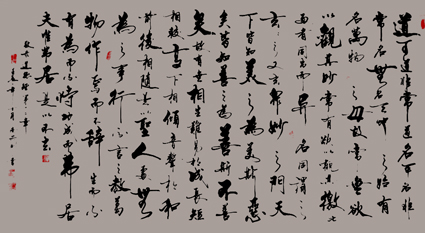 道可道非常道名可名非
常名無名天地之始有
名萬物之母故常無欲
以觀其妙常有欲以觀其徼此
兩者同出而異名同謂之
玄玄之又玄衆妙之門天
下皆知美之為美斯惡
矣皆知善之為善斯不善
矣故有無相生難易相成長短
相較高下相傾音聲相和
前後相隨是以聖人處無
為之事行不言之教萬
物作焉而不辭生而不
有為而不恃功成而弗居
夫唯弗居是以不去